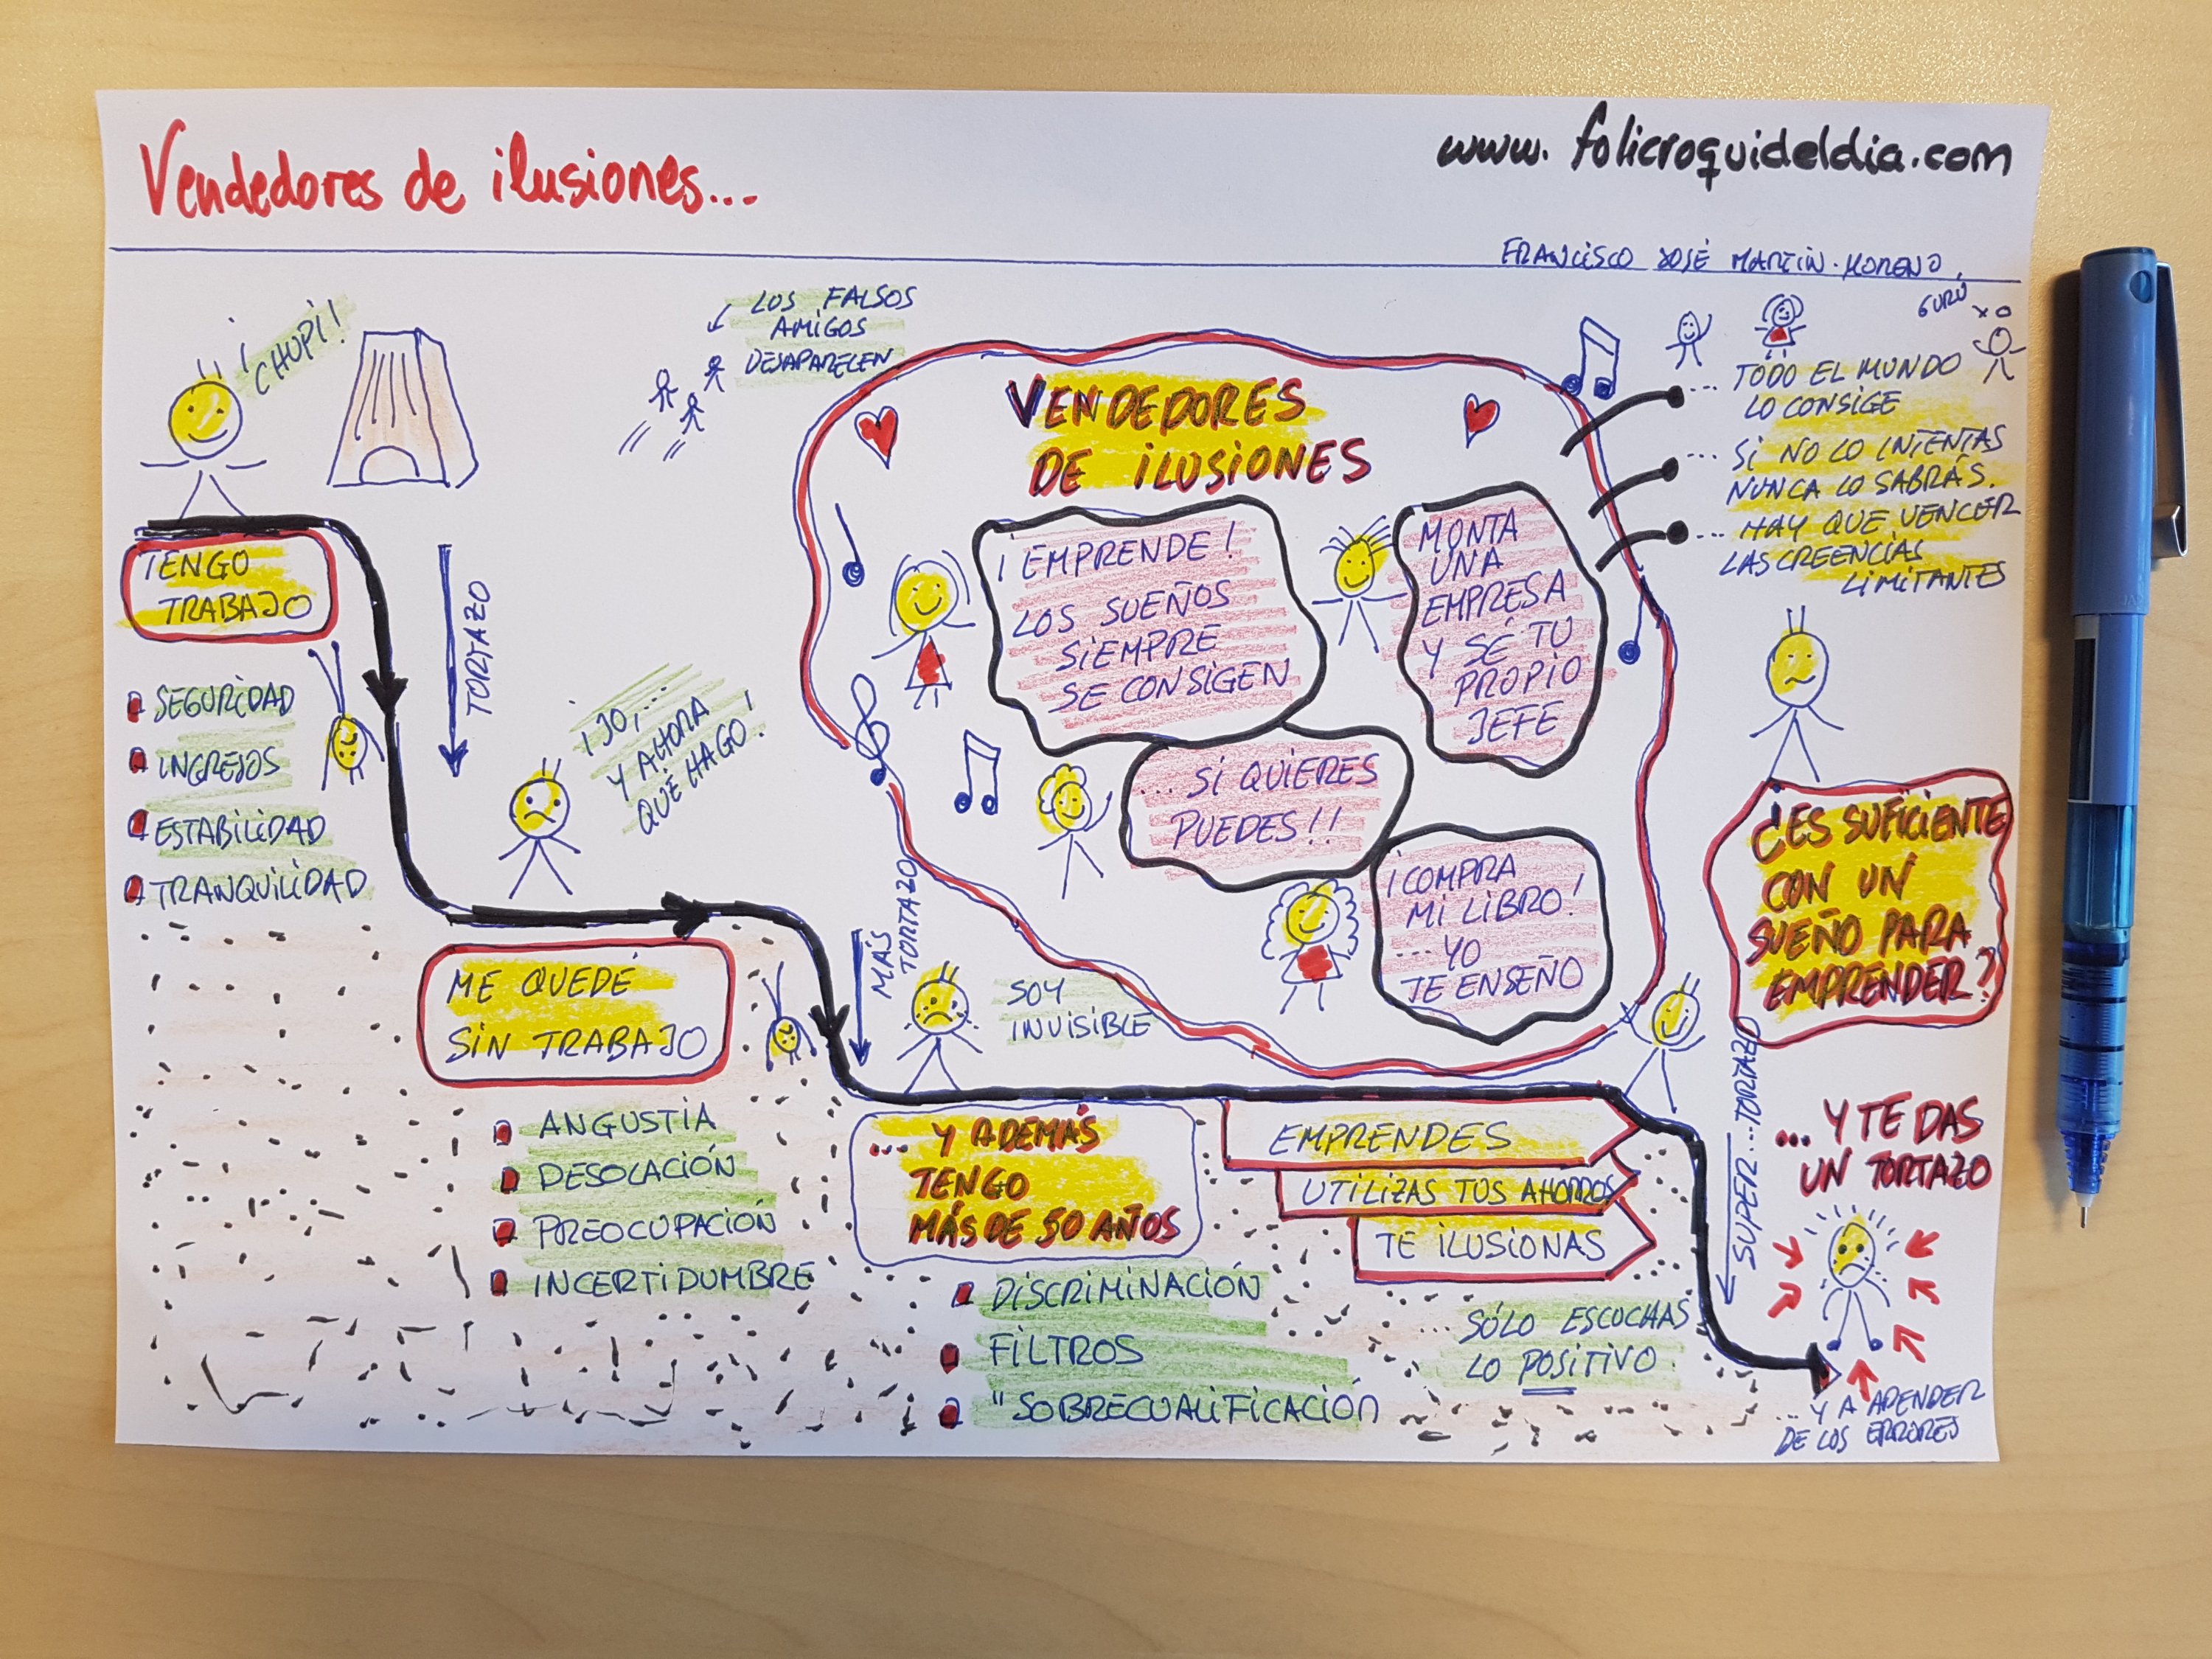 Vendedores de ilusiones...
www.folicroquideldia.com
FRANCISCO JOSÉ MARTÍN-MORENO
¡CHUPI!
TENGO
TRABAJO
SEGURIDAD
INGRESOS
ESTABILIDAD
TRANQUILIDAD
TORTAZO
LOS FALSOS
AMIGOS
DESAPARECEN
¡JO,...
Y AHORA
QUÉ HAGO!
ME QUEDÉ
SIN TRABAJO
ANGUSTIA
DESOLACIÓN
PREOCUPACIÓN
INCERTIDUMBRE
MÁS
TORTAZO
SOY
INVISIBLE
... Y ADEMÁS
TENGO
MÁS DE 50 AÑOS
DISCRIMINACIÓN
FILTROS
"SOBRECUALIFICACIÓN
VENDEDORES
DE ILUSIONES
¡EMPRENDE!
LOS SUEÑOS
SIEMPRE
SE CONSIGEN
MONTA
UNA
EMPRESA
Y SÉ TU
PROPIO
JEFE
... SI QUIERES
PUEDES!!
¡COMPRA
MI LIBRO!
... YO
TE ENSEÑO
GURÚ
... TODO EL MUNDO
LO CONSIGE
... SI NO LO INTENTAS
NUNCA LO SABRÁS.
... HAY QUE VENCER
LAS CREENCIAS
LIMITANTES
EMPRENDES
UTILIZAS TUS AHORROS
TE ILUSIONAS
... SÓLO ESCUCHAS
LO POSITIVO.
SUPER...TORTAZO
¿ES SUFICIENTE
CON UN
SUEÑO PARA
EMPRENDER?
... Y TE DAS
UN TORTAZO
... Y A APENDER
DE LOS ERRORES